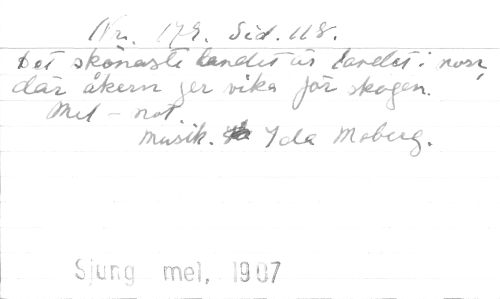 Nr. 179. Sid. 118.
Det skönaste landet är landet i norr,
där åkern ger vika för skogen.
Mel – not.
Musik. Ida Moberg.
Sjung mel, 1907